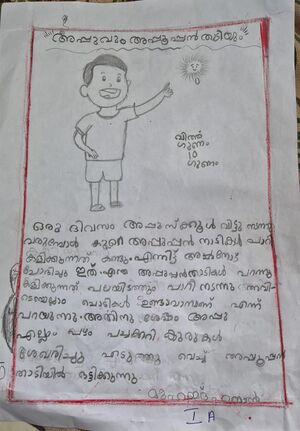 "അപ്പുവും അപ്പൂപ്പൻതാടിയും"
വിത്ത്
ഗുണം
10
ഗുണം
ഒരു ദിവസം അപ്പു സ്ക്കൂൾ വിട്ടു
വരുമ്പോൾ കുറെ അപ്പൂപ്പൻ താടികൾ പാറി
കളിക്കുന്നത് കണ്ടു. എന്നിട്ട്
ചോദിച്ചു ഇത് എന്താ അപ്പൂപ്പൻതാടികൾ പറന്നു
കളിക്കുന്നത് പലയിടത്തും പാറി നടന്നു
ചെടികൾ ഉണ്ടാവാനാണ് എന്ന്
പറയുന്നു. അതിനു ശേഷം അപ്പു
എല്ലാം പഴം പച്ചക്കറി കുരുകൾ
ശേഖരിച്ചു എടുത്തു വെച്ച് അപ്പൂപ്പൻ
താടിയിൽ ഒട്ടിക്കുന്നു.
I A